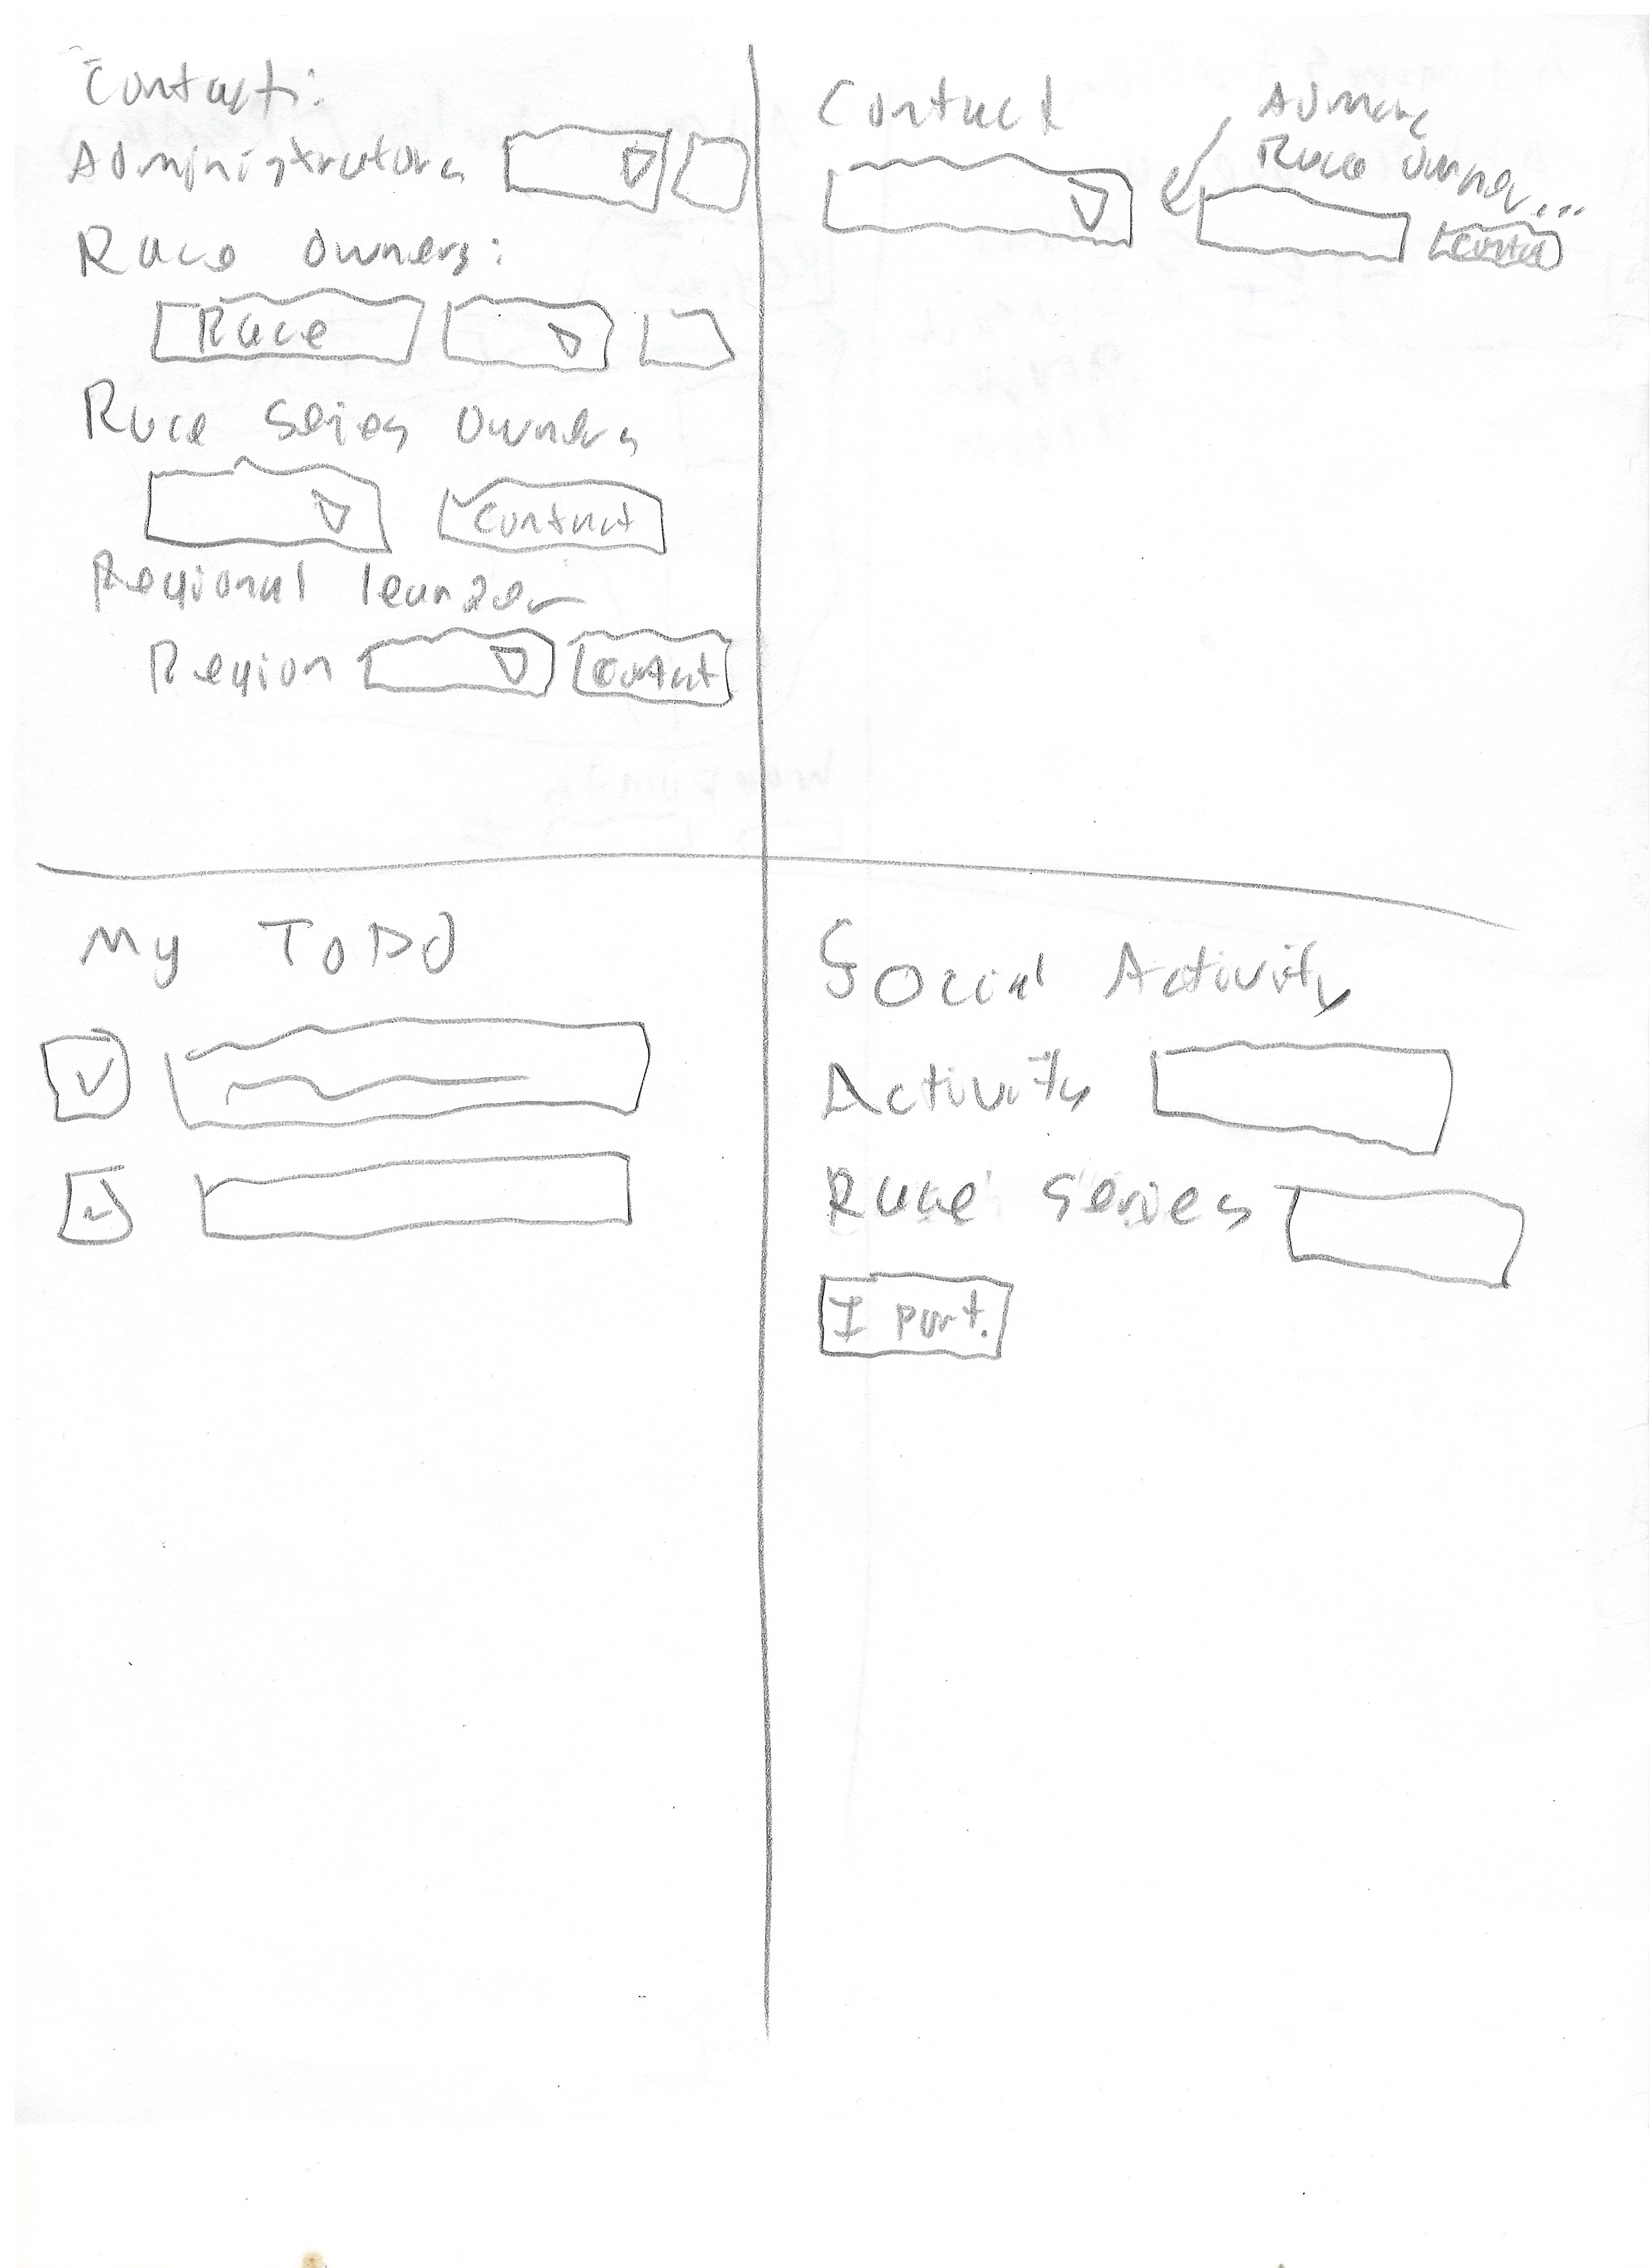 Contact:
Administrators
Race Owners:
Race
Race Series Owners
Contact
Regional leader
Region Contact
Contact
Race Owner...
My ToDO
Social Activity
Activity
Race Series
I part.